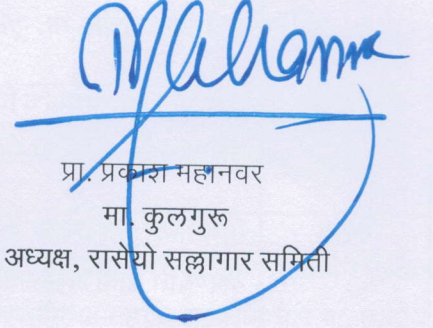 प्रा. प्रकाश महानवर
मा. कुलगुरू
अध्यक्ष, रासेयो सल्लागार समिती